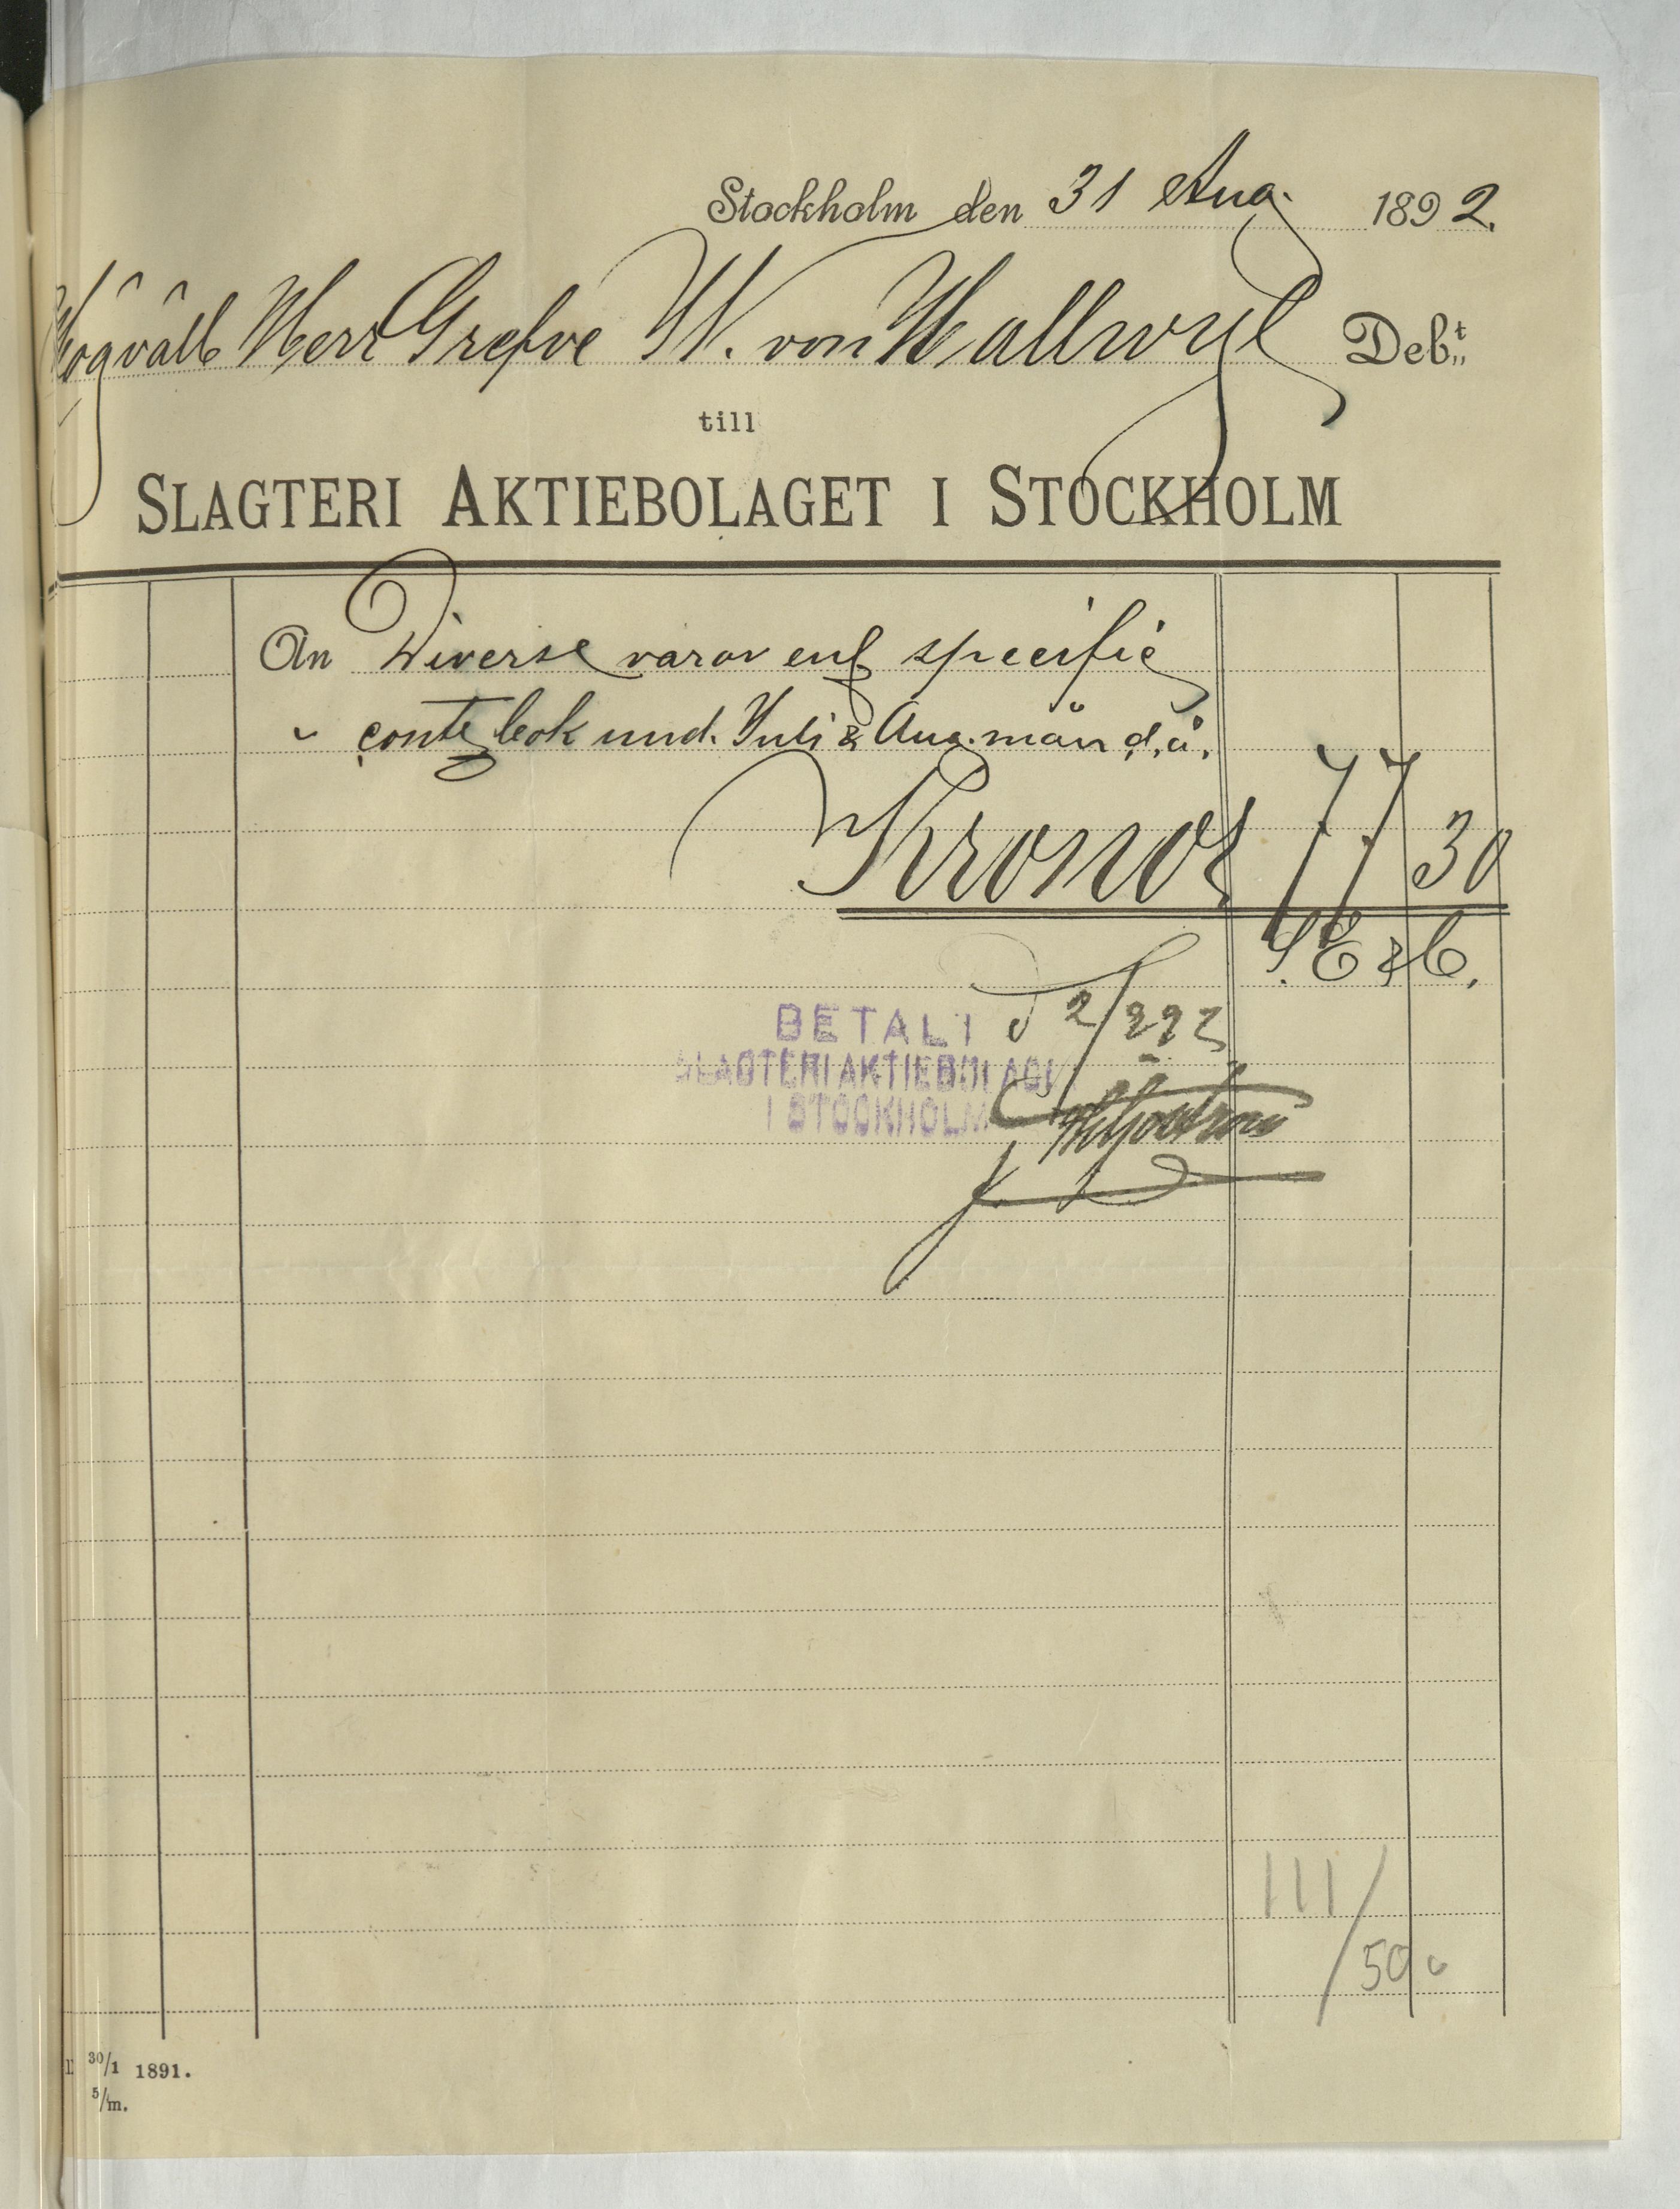 Stockholm den 31 Aug. 1892.
Högvälb Herr Grefve W. von Hallwyl Deb:t
till
SLAGTERI AKTIEBOLAGET I STOCKHOLM
An Diverse varor enl specific
" contebok und. Juli & Aug. mån d.å.
Kronor 77 30
S. E & O.
BETALT
SLAGTERIAKTIEBOLAGET
I STOCKHOLM
111/50
30/1 1891.
5/m.